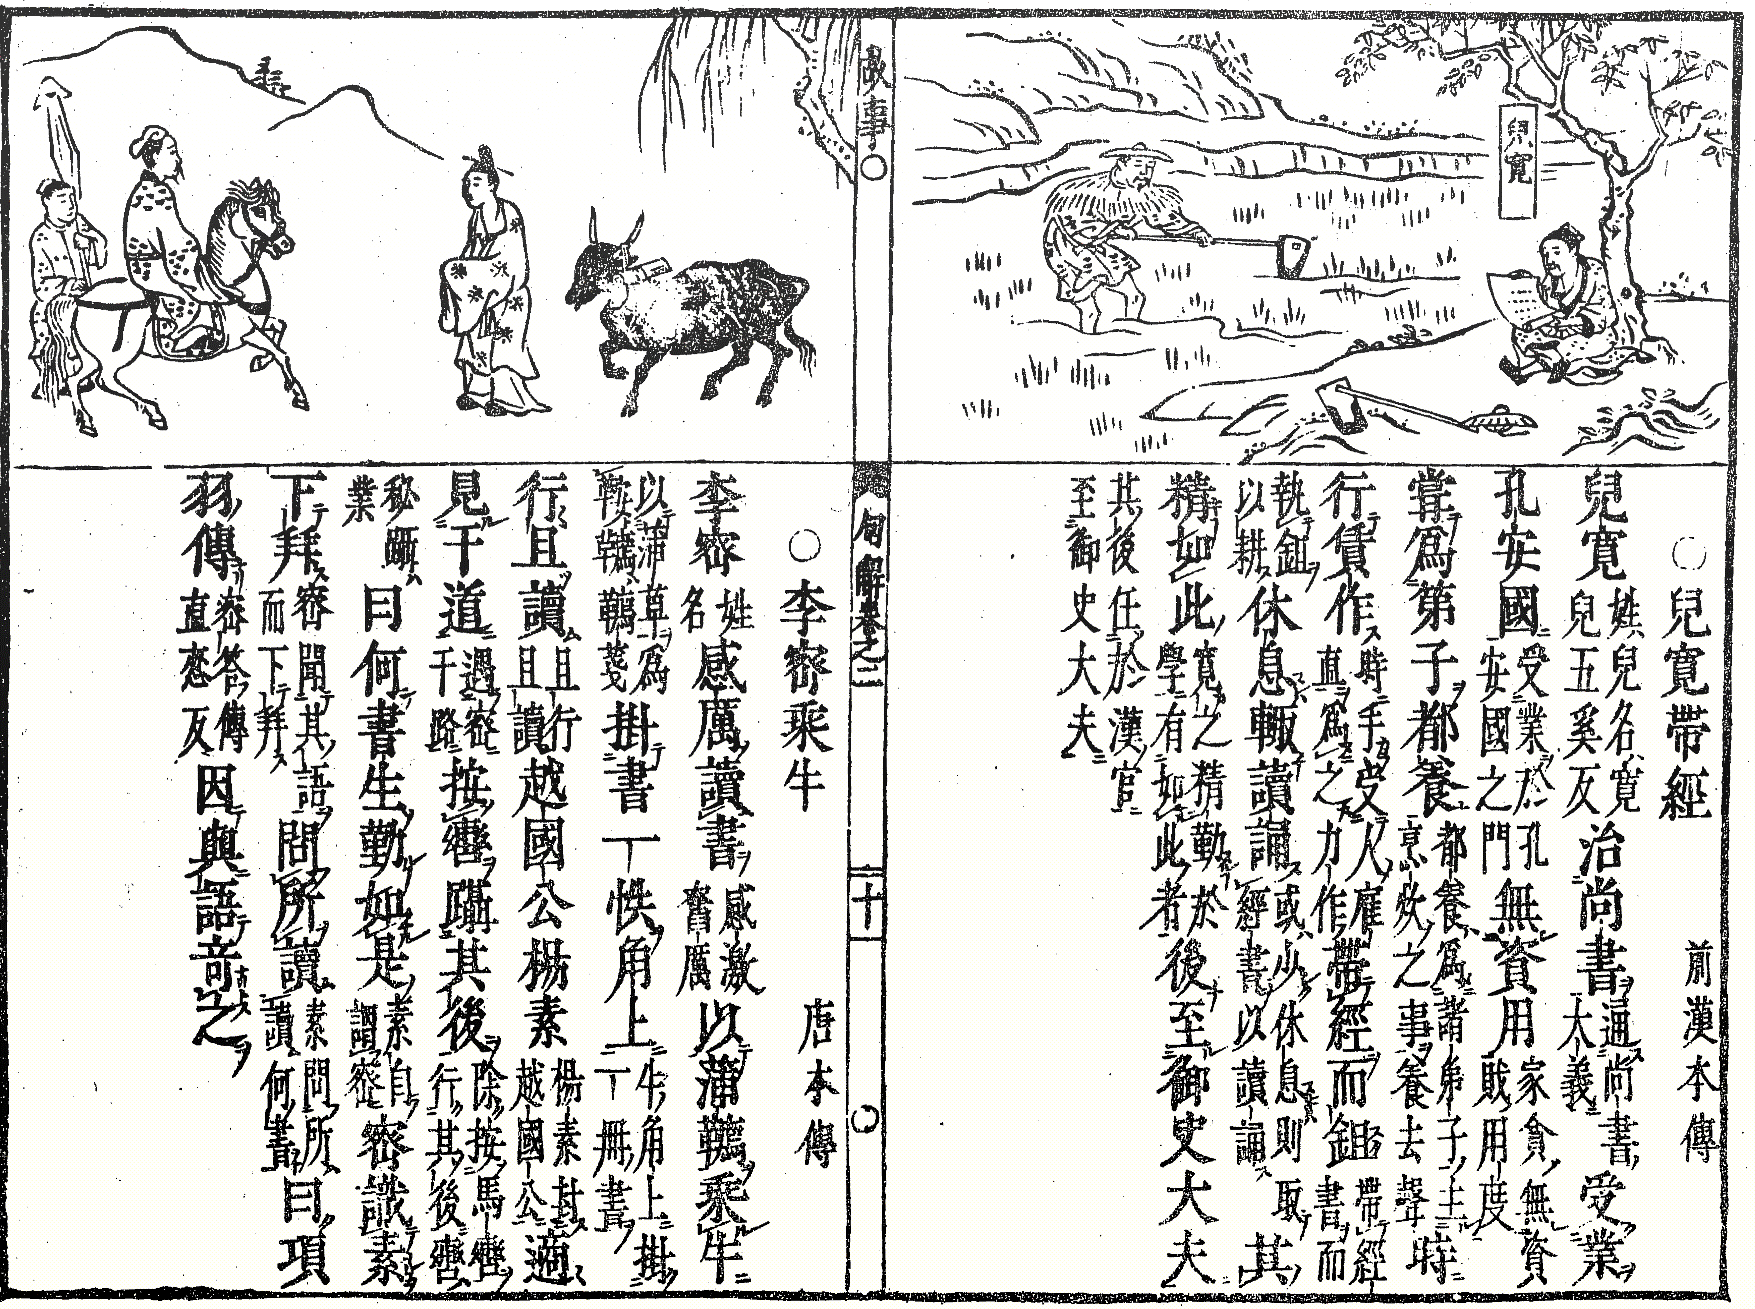 兒寬
○兒寬帶經 前漢本傳
兒寬姓兒名寬兒五奚反治尚書通尚書大義受業
孔安國受業於孔安國之門無資用家貧無資財用度
嘗爲第子都養都養爲諸弟子主烹炊之事養去聲時
行賃作時手受人雇直爲之力作帶經而鉏帶經書而
執鉏以耕休息輙讀誦或少休息則取經書以讀誦其
精如此寬之精勤於學有如此者後至御史大夫
其後任於漢官至御史大夫
故事○
句解卷之二
十
○李密乘牛 唐本傳
李密姓名感厲讀書感激奮厲以蒲韉乘牛
以蒲草爲鞍韉韉箋掛書一帙角上牛角上掛一冊書
行且讀且行且讀越國公楊素楊素封越國公適
見于道遇密于路按轡躡其後除按馬轡行其後
秘躡業曰何書生勤如是素自謂密密識素
下拜密聞其語而下拜問所讀素問所讀何書曰項
羽傳密答傳直戀反因與語奇之